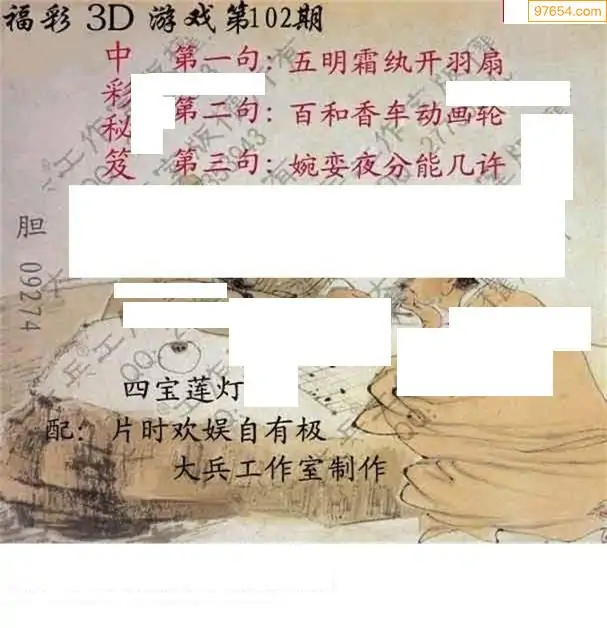 97654.com
福彩 3D 游戏第102期
中彩秘笈
第一句：五明霜纨开羽扇
第二句：百和香车动画轮
第三句：婉娈夜分能几许
胆 09274
四宝莲灯
配：片时欢娱自有极
大兵工作室制作